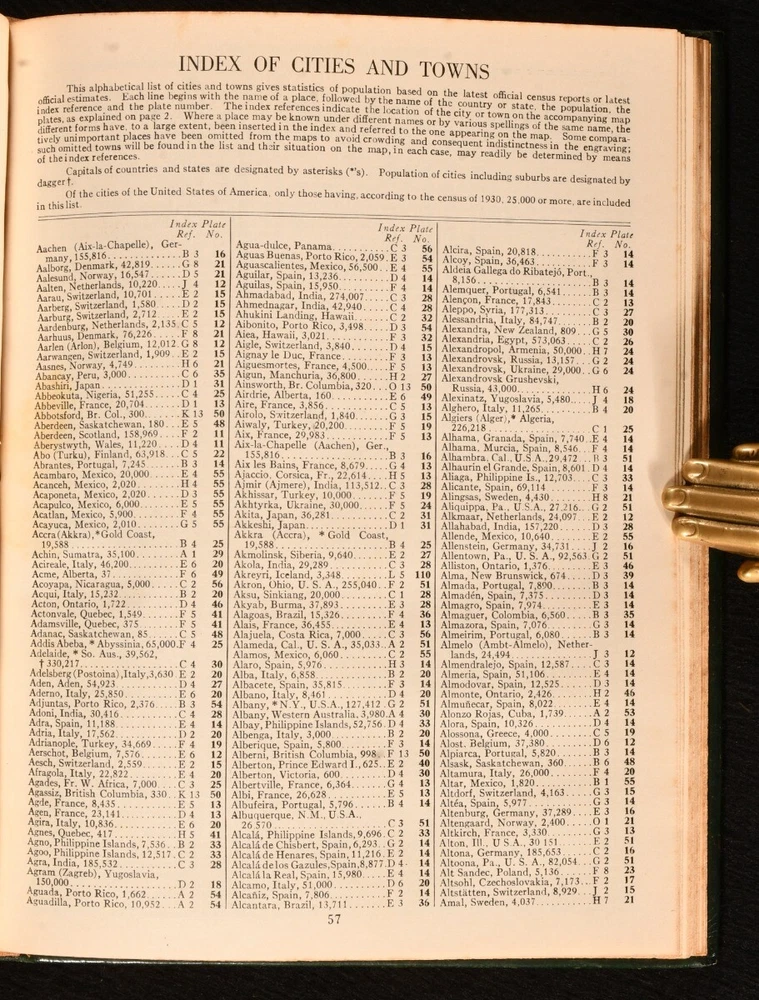 INDEX OF CITIES AND TOWNS
This alphabetical list of cities and towns gives statistics of population based on the latest official census reports or latest
official estimates. Each line begins with the name of a place, followed by the name of the country or state, the population, the
index reference and the plate number. The index references indicate the location of the city or town on the accompanying map
plates, as explained on page 2. Where a place may be known under different names or by various spellings of the same name, the
different forms have, to a large extent, been inserted in the index and referred to the one appearing on the map. Some compara-
tively unimportant places have been omitted from the maps to avoid crowding and consequent indistinctness in the engraving;
such omitted towns will be found in the list and their situation on the map, in each case, may readily be determined by means
of the index references.
Capitals of countries and states are designated by asterisks (*'s). Population of cities including suburbs are designated by
dagger †.
Of the cities of the United States of America, only those having, according to the census of 1930, 25,000 or more, are included
in this list.
Index Plate
Ref. No.
Aachen (Aix-la-Chapelle), Ger-
many, 155,816 B 3 16
Aalborg, Denmark, 42,819 G 8 21
Aalesund, Norway, 16,547 D 5 21
Aalten, Netherlands, 10,220 J 4 12
Aarau, Switzerland, 10,701 E 2 15
Aarberg, Switzerland, 1,580 D 2 15
Aarburg, Switzerland, 2,712 E 2 15
Aardenburg, Netherlands, 2,135 C 5 12
Aarhuus, Denmark, 76,226 F 8 21
Aarlen (Arlon), Belgium, 12,012 G 8 12
Aarwangen, Switzerland, 1,909 E 2 15
Aasnes, Norway, 4,749 H 6 21
Abancay, Peru, 3,000 C 6 35
Abashiri, Japan D 1 31
Abbeokuta, Nigeria, 51,255 C 4 25
Abbeville, France, 20,704 D 1 13
Abbotsford, Br. Col., 300 K 13 50
Aberdeen, Saskatchewan, 180 E 5 48
Aberdeen, Scotland, 158,969 F 2 11
Aberystwyth, Wales, 11,220 D 4 11
Abo (Turku), Finland, 63,918 C 5 22
Abrantes, Portugal, 7,245 B 3 14
Acambaro, Mexico, 20,000 E 4 55
Acanceh, Mexico, 2,020 H 4 55
Acaponeta, Mexico, 2,020 D 3 55
Acapulco, Mexico, 6,000 E 5 55
Acatlan, Mexico, 5,900 F 4 55
Acayuca, Mexico, 2,010 G 5 55
Accra (Akkra), * Gold Coast,
19,588 B 4 25
Achin, Sumatra, 35,100 A 1 29
Acireale, Italy, 46,200 E 6 20
Acme, Alberta, 37 F 6 49
Acoyapa, Nicaragua, 5,000 C 2 56
Acqui, Italy, 15,232 B 2 20
Acton, Ontario, 1,722 D 4 46
Actonvale, Quebec, 1,549 F 5 41
Adamsville, Quebec, 375 F 5 41
Adanac, Saskatchewan, 85 C 5 48
Addis Abeba, * Abyssinia, 65,000 F 4 25
Adelaide, * So. Aus., 39,562,
† 330,217 C 4 30
Adelsberg (Postoina), Italy, 3,630 E 2 20
Aden, Aden, 54,923 D 4 27
Aderno, Italy, 25,850 E 6 20
Adjuntas, Porto Rico, 2,376 B 3 54
Adoni, India, 30,416 C 4 28
Adra, Spain, 11,188 E 4 14
Adria, Italy, 17,562 D 2 20
Adrianople, Turkey, 34,669 F 4 19
Aerschot, Belgium, 7,576 E 6 12
Aesch, Switzerland, 2,559 E 2 15
Afragola, Italy, 22,822 E 4 20
Agades, Fr. W. Africa, 7,000 C 3 25
Agassiz, British Columbia, 330 K 13 50
Agde, France, 8,435 E 5 13
Agen, France, 23,141 D 4 13
Agira, Italy, 10,836 E 6 20
Agnes, Quebec, 417 H 5 41
Agno, Philippine Islands, 7,536 B 2 33
Agoo, Philippine Islands, 12,517 C 2 33
Agra, India, 185,532 C 3 28
Agram (Zagreb), Yugoslavia,
150,000 D 2 18
Aguada, Porto Rico, 1,662 A 2 54
Aguadilla, Porto Rico, 10,952 A 2 54
Index Plate
Ref. No.
Agua-dulce, Panama C 3 56
Aguas Buenas, Porto Rico, 2,059 E 3 54
Aguascalientes, Mexico, 56,500 E 4 55
Aguilar, Spain, 13,236 D 4 14
Aguilas, Spain, 15,950 F 4 14
Ahmadabad, India, 274,007 C 3 28
Ahmednagar, India, 42,940 C 4 28
Ahukini Landing, Hawaii C 2 32
Aibonito, Porto Rico, 3,498 D 3 54
Aiea, Hawaii, 3,021 F 3 32
Aigle, Switzerland, 3,840 D 4 15
Aignay le Duc, France F 3 13
Aiguesmortes, France, 4,500 F 5 13
Aigun, Manchuria, 36,800 H 2 27
Ainsworth, Br. Columbia, 320 O 13 50
Airdrie, Alberta, 160 E 6 49
Aire, France, 3,856 C 5 13
Airolo, Switzerland, 1,840 G 3 15
Aiwaly, Turkey, 20,200 F 5 19
Aix, France, 29,983 F 5 13
Aix-la-Chapelle (Aachen), Ger.,
155,816 B 3 16
Aix les Bains, France, 8,679 G 4 13
Ajaccio, Corsica, Fr., 22,614 H 5 13
Ajmir (Ajmere), India, 113,512 C 3 28
Akhissar, Turkey, 10,000 F 5 19
Akhtyrka, Ukraine, 30,000 F 5 24
Akita, Japan, 36,281 C 2 31
Akkeshi, Japan D 1 31
Akkra (Accra), * Gold Coast,
19,588 B 4 25
Akmolinsk, Siberia, 9,640 E 2 27
Akola, India, 29,289 C 3 28
Akreyri, Iceland, 3,348 L 5 110
Akron, Ohio, U. S. A., 255,040 F 2 51
Aksu, Sinkiang, 20,000 C 1 28
Akyab, Burma, 37,893 E 3 28
Alagoas, Brazil, 15,326 F 4 36
Alais, France, 36,455 E 4 13
Alajuela, Costa Rica, 7,000 C 3 56
Alameda, Cal., U. S. A., 35,033 A 2 51
Alamos, Mexico, 6,060 C 2 55
Alaro, Spain, 5,976 H 3 14
Alba, Italy, 6,858 B 2 20
Albacete, Spain, 35,815 F 3 14
Albano, Italy, 8,461 D 4 20
Albany, * N.Y., U.S.A., 127,412 G 2 51
Albany, Western Australia, 3,980 A 4 30
Albay, Philippine Islands, 52,756 D 4 33
Albenga, Italy, 3,000 B 2 20
Alberique, Spain, 5,800 F 3 14
Alberni, British Columbia, 998 F 13 50
Alberton, Prince Edward I., 625 E 2 40
Alberton, Victoria, 600 D 4 30
Albertville, France, 6,364 G 4 13
Albi, France, 26,628 E 5 13
Albufeira, Portugal, 5,796 B 4 14
Albuquerque, N.M., U.S.A.,
26,570 C 3 51
Alcalá, Philippine Islands, 9,696 C 2 33
Alcalá de Chisbert, Spain, 6,293 G 2 14
Alcalá de Henares, Spain, 11,216 E 2 14
Alcalá de los Gazules, Spain, 8,877 D 4 14
Alcalá la Real, Spain, 15,980 E 4 14
Alcamo, Italy, 51,000 D 6 20
Alcañiz, Spain, 7,806 F 2 14
Alcantara, Brazil, 13,711 E 3 36
Index Plate
Ref. No.
Alcira, Spain, 20,818 F 3 14
Alcoy, Spain, 36,463 F 3 14
Aldeia Gallega do Ribatejó, Port.,
8,156 B 3 14
Alemquer, Portugal, 6,541 B 3 14
Alençon, France, 17,843 C 2 13
Aleppo, Syria, 177,313 C 3 27
Alessandria, Italy, 84,747 B 2 20
Alexandra, New Zealand, 809 G 5 30
Alexandria, Egypt, 573,063 C 2 26
Alexandropol, Armenia, 50,000 H 7 24
Alexandrovsk, Russia, 13,157 G 2 24
Alexandrovsk, Ukraine, 29,000 G 6 24
Alexandrovsk Grushevski,
Russia, 43,000 H 6 24
Alexinatz, Yugoslavia, 5,480 J 4 18
Alghero, Italy, 11,265 B 4 20
Algiers (Alger), * Algeria,
226,218 C 1 25
Alhama, Granada, Spain, 7,740 E 4 14
Alhama, Murcia, Spain, 8,546 F 4 14
Alhambra, Cal., U.S.A., 29,472 B 3 51
Alhaurin el Grande, Spain, 8,601 D 4 14
Aliaga, Philippine Is., 12,703 C 3 33
Alicante, Spain, 69,114 F 3 14
Alingsas, Sweden, 4,430 H 8 21
Aliquippa, Pa., U.S.A., 27,216 G 2 51
Alkmaar, Netherlands, 24,097 E 2 12
Allahabad, India, 157,220 D 3 28
Allende, Mexico, 10,640 E 2 55
Allenstein, Germany, 34,731 J 2 16
Allentown, Pa., U. S. A., 92,563 G 2 51
Alliston, Ontario, 1,376 E 3 46
Alma, New Brunswick, 674 D 3 39
Almada, Portugal, 7,890 B 3 14
Almadén, Spain, 7,375 D 3 14
Almagro, Spain, 7,974 E 3 14
Almaguer, Colombia, 6,560 B 3 35
Almazora, Spain, 7,076 G 3 14
Almeirim, Portugal, 6,080 B 3 14
Almelo (Ambt-Almelo), Nether-
lands, 24,494 J 3 12
Almendralejo, Spain, 12,587 C 3 14
Almeria, Spain, 51,106 E 4 14
Almodovar, Spain, 12,525 D 3 14
Almonte, Ontario, 2,426 H 2 46
Almuñecar, Spain, 8,022 E 4 14
Alonzo Rojas, Cuba, 1,739 A 2 53
Alora, Spain, 10,326 D 4 14
Alossona, Greece, 4,000 C 5 19
Alost, Belgium, 37,380 D 6 12
Alpiarca, Portugal, 5,820 B 3 14
Alsask, Saskatchewan, 360 B 6 48
Altamura, Italy, 26,000 F 4 20
Altar, Mexico, 1,820 B 1 55
Altdorf, Switzerland, 4,163 G 3 15
Altéa, Spain, 5,977 G 3 14
Altenburg, Germany, 37,289 E 3 16
Altengaard, Norway, 2,400 O 1 21
Altkirch, France, 3,330 G 3 13
Alton, Ill., U.S.A., 30,151 E 2 51
Altona, Germany, 185,653 C 2 16
Altoona, Pa., U. S. A., 82,054 G 2 51
Alt Sandec, Poland, 5,136 F 8 23
Altsohl, Czechoslovakia, 7,173 F 2 17
Altstätten, Switzerland, 8,929 J 2 15
Amal, Sweden, 4,037 H 7 21
57